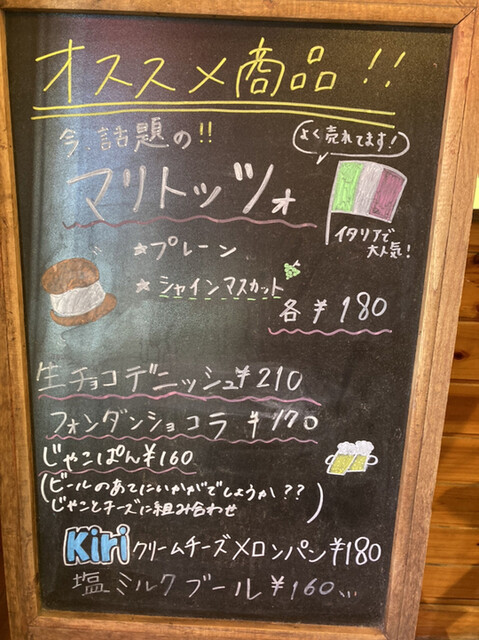 オススメ商品!!
今、話題の!!
よく売れてます!
マリトッツォ
イタリアで
大人気!
★プレーン
★シャインマスカット
各¥180
生チョコデニッシュ¥210
フォンダンショコラ ¥170
じゃこぱん¥160
(ビールのあてにいかがでしょうか??
じゃことチーズに組み合わせ)
Kiriクリームチーズメロンパン¥180
塩ミルクブール¥160...